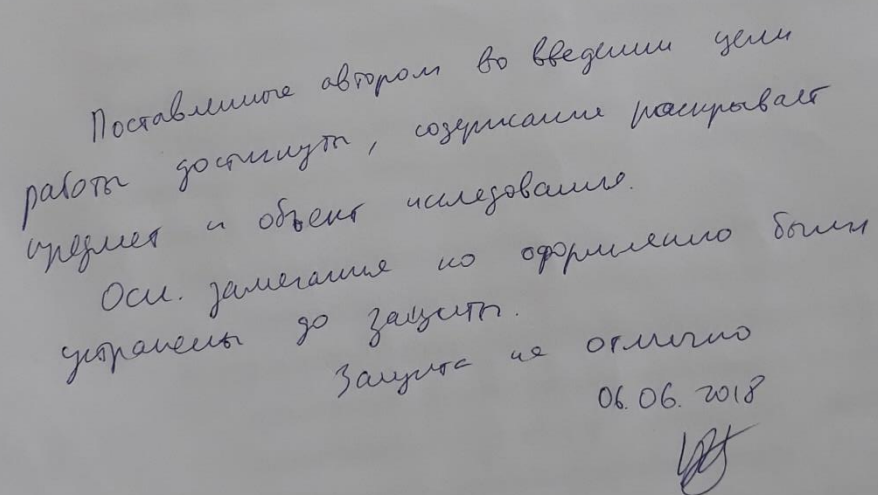 Поставленные автором во введении цели
работы достигнуты, содержание раскрывает
предмет и объект исследования.
Осн. замечания по оформлению были
устранены до защиты.
Защита на отлично
06.06.2018